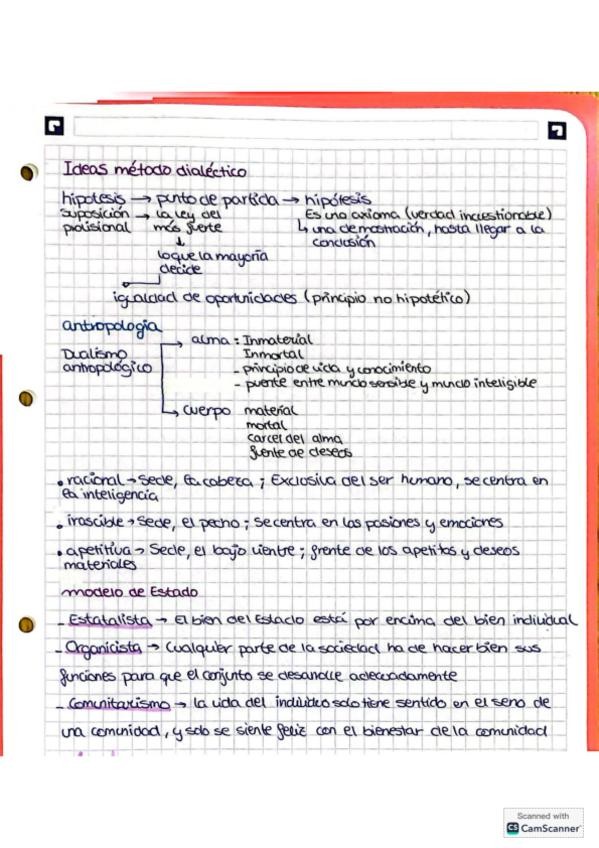 Ideas método dialéctico
hipotesis → punto de partida → hipótesis
suposición → la ley del Es una axioma (verdad incuestionable)
prolisional más fuerte ↳ una demostración, hasta llegar a la
↓ conclusión
lo que la mayoría
decide
igualdad de oportunidades (principio no hipotético)
antropologia
→ alma : Inmaterial
Dualismo Inmortal
antropológico - principio de vida y conocimiento
- puente entre mundo sensible y mundo inteligible
↳ cuerpo material
mortal
carcel del alma
fuente de deseos
• racional → Sede, la cabeza ; Exclusiva del ser humano, se centra en
la inteligencia
• irascible → Sede, el pecho ; Se centra en las pasiones y emociones
• apetitiva → Sede, el bajo vientre ; frente de los apetitos y deseos
materiales
modelo de Estado
- Estatalista → El bien del Estado está por encima del bien individual
- Organicista → Cualquier parte de la sociedad ha de hacer bien sus
funciones para que el conjunto se desarrolle adecuadamente
- Comunitarismo → la vida del individuo solo tiene sentido en el seno de
una comunidad, y solo se siente feliz con el bienestar de la comunidad
Scanned with
CS CamScanner